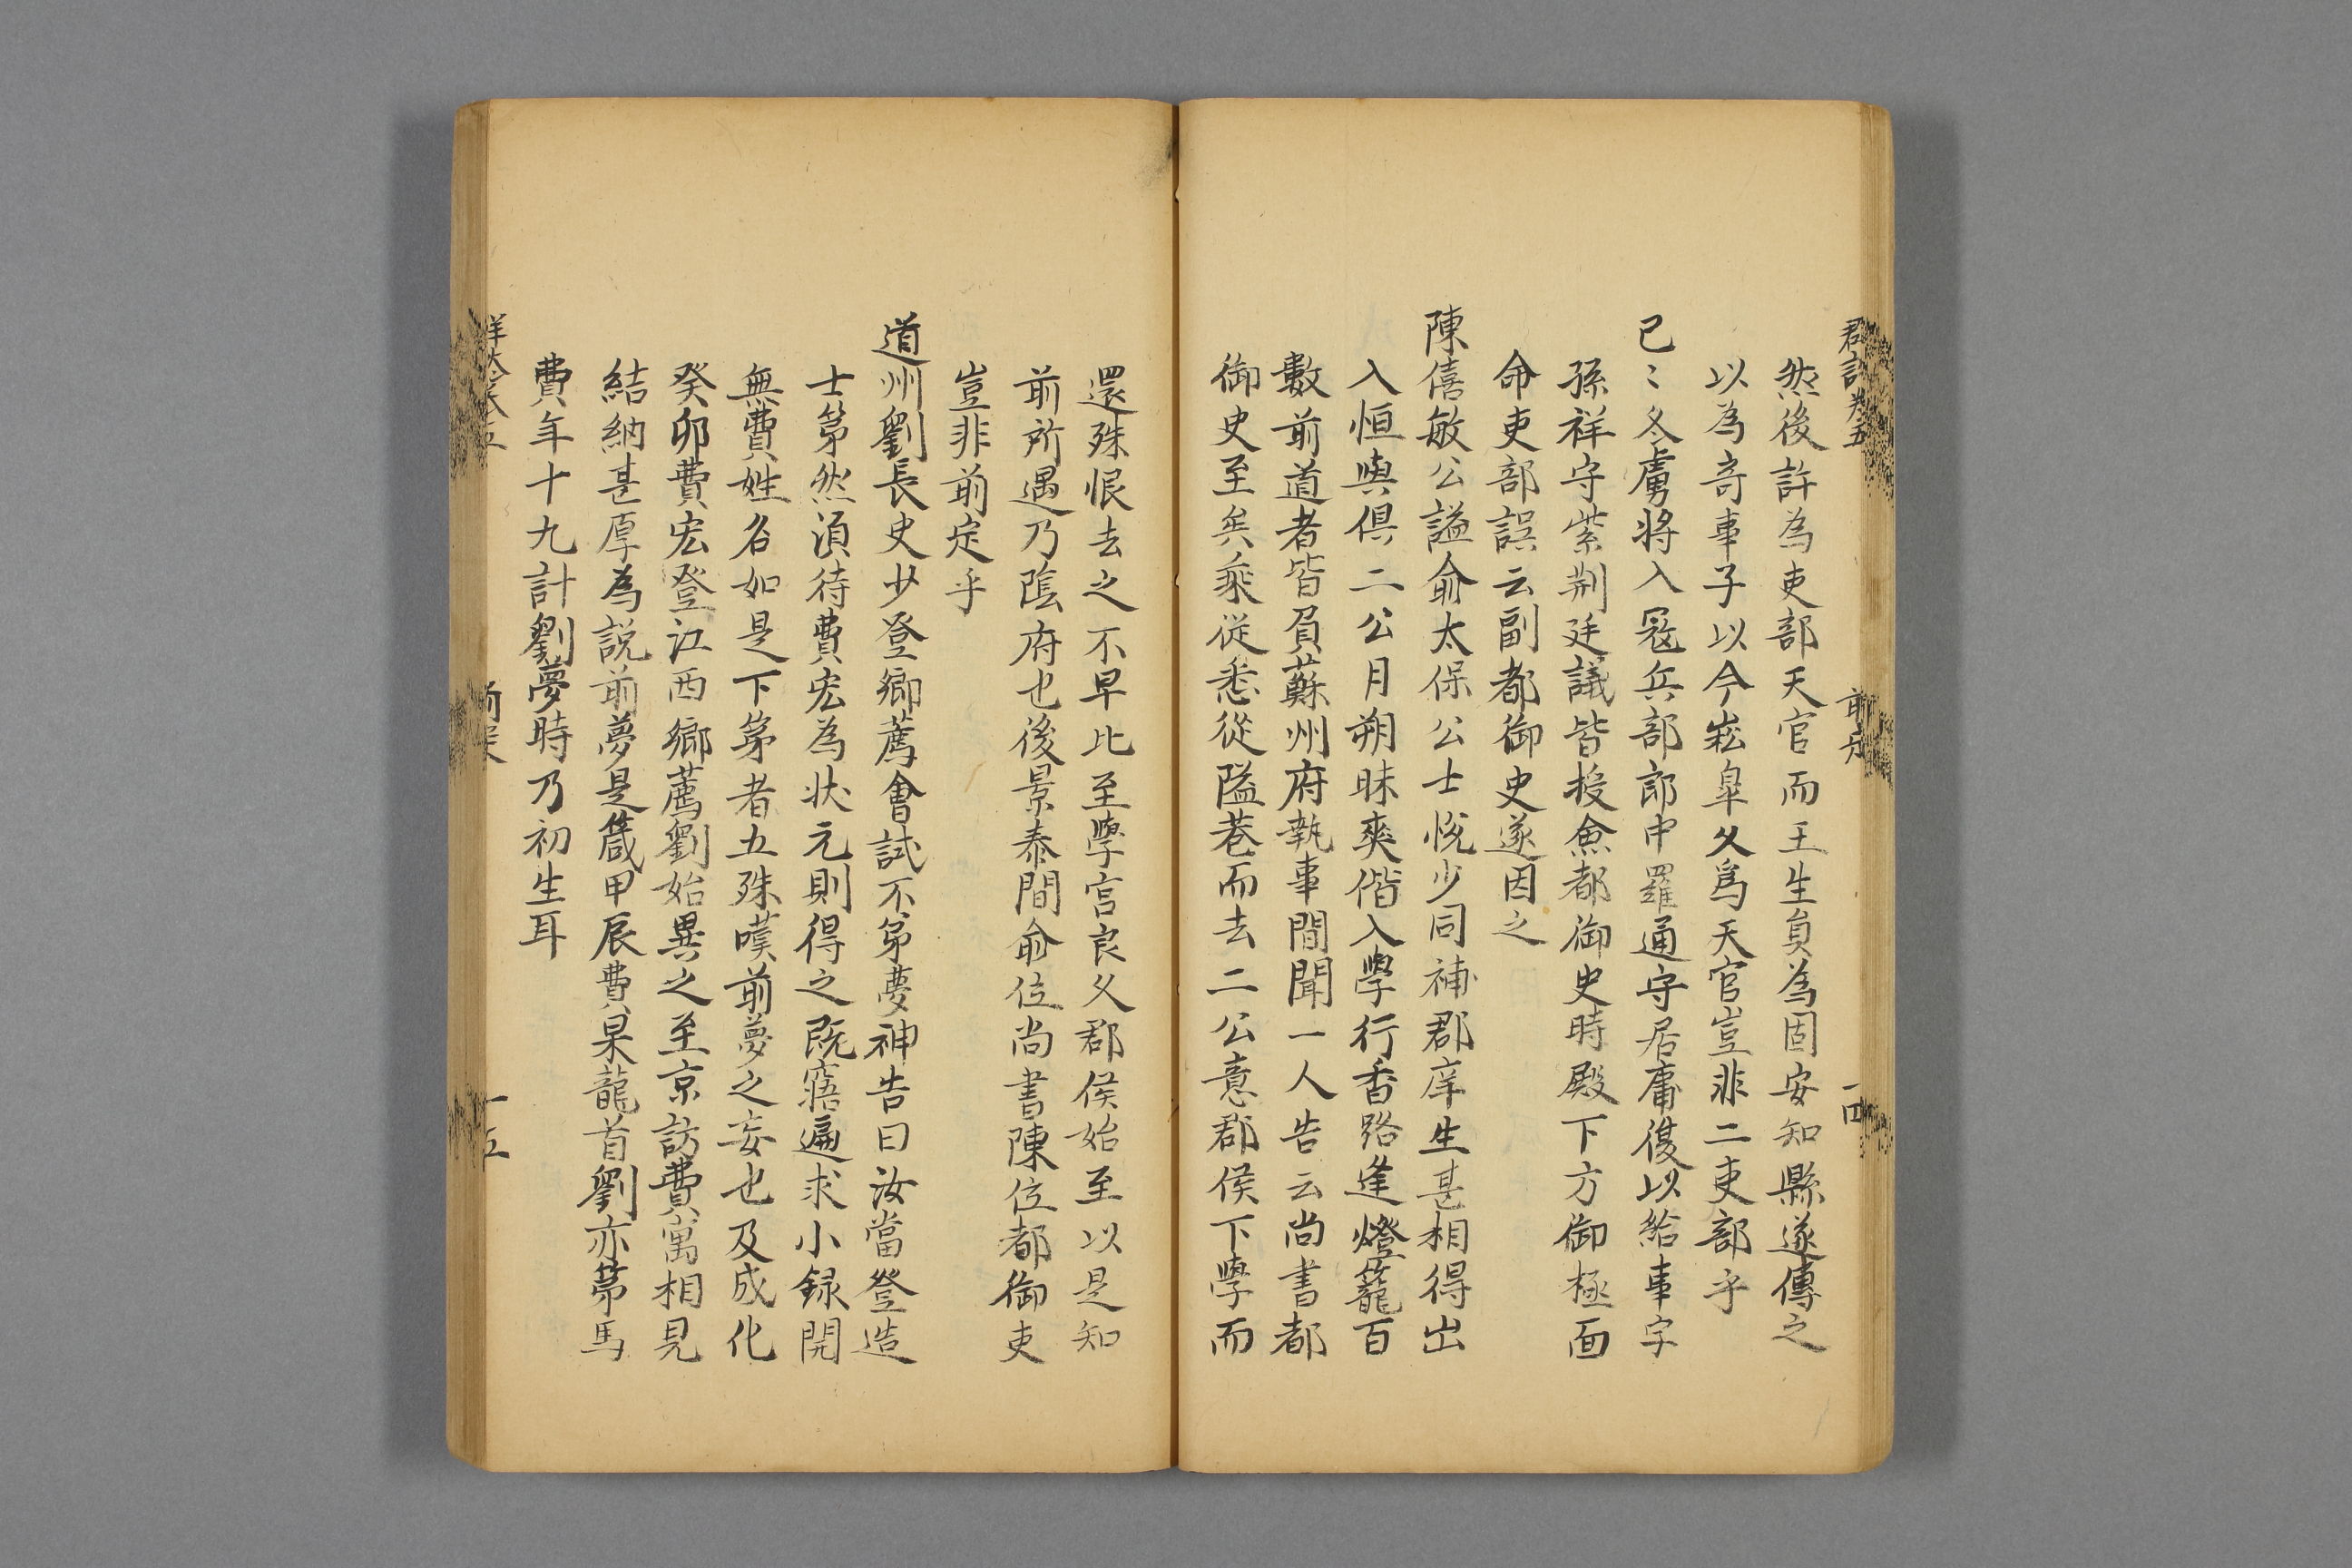 然後許為吏部天官而王生負為固安知縣遂傳之
以為竒事子以今崧皐久爲天官豈非二吏部乎
已〻冬虜將入冦兵部郎中羅通守居庸復以給事字
孫祥守紫荆廷議皆授僉都御史時殿下方御極面
命吏部誤云副都御史遂因之
陳僖敏公謚俞太保公士悅少同補郡庠生甚相得出
入恒與俱二公月朔昧爽偕入學行香路逢燈籠百
數前道者皆負蘇州府執事間聞一人告云尚書都
御史至矣乘從悉從隘巷而去二公意郡侯下學而
還殊恨去之不早比至學宫良久郡侯始至以是知
前所遇乃陰府也後景泰間俞位尚書陳位都御吏
豈非前定乎
道州劉長史少登鄉薦會試不第夢神告曰汝當登造
士第然湏待費宏為狀元則得之既寤遍求小録閱
無費姓名如是下第者五殊嘆前夢之妄也及成化
癸卯費宏登江西鄉薦劉始異之至京訪費寓相見
結納甚厚為説前夢是歲甲辰費果龍首劉亦第焉
費年十九計劉夢時乃初生耳